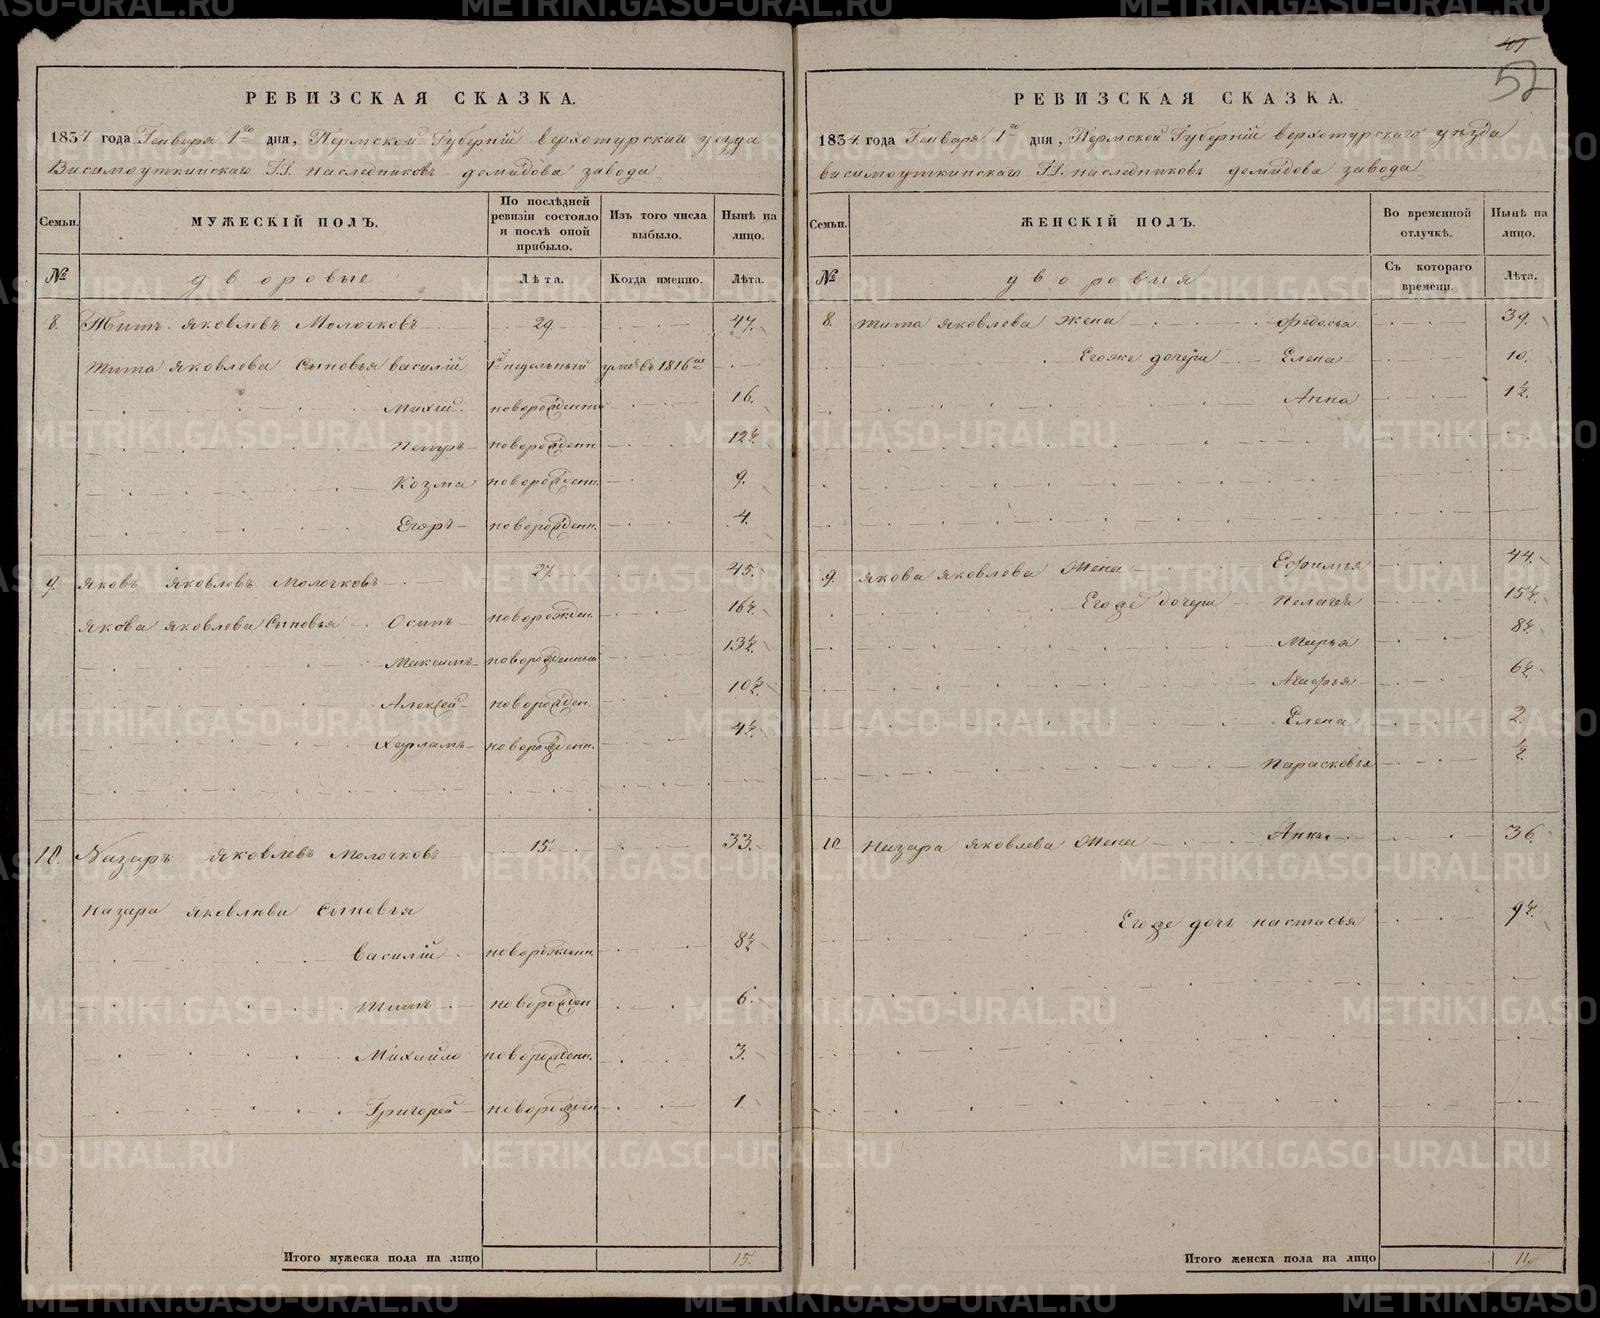 РЕВИЗСКАЯ СКАЗКА.
1834 года Генваря 1го дня, Пермской Губернии верхотурскаго уезда
Висимоуткинскаго Г.Г. наследниковъ демидова завода
Семьи. МУЖЕСКІЙ ПОЛЪ. По послѣдней ревизіи состояло и послѣ оной прибыло. Изъ того числа выбыло. Нынѣ на лицо.
№ дворовые Лѣта. Когда именно. Лѣта.
8. Титъ яковлевъ Молочковъ 29 47.
тита яковлева сыновья василій 1 недельный умеръ въ 1816
Михей новорожденный 16.
Петръ новорожденн. 12½.
Козма новорожденн. 9.
Егоръ новорожденн. 4.
9. яковъ яковлевъ молочковъ 27. 45.
якова яковлева сыновья Осипъ новорожден. 16½.
Максимъ новорожденный 13½.
Алексей новорожден. 10½.
Харламъ новорожденн. 4½.
10. Назаръ яковлевъ молочковъ 15. 33.
назара яковлева сыновья
василій новорожденн. 8½
новорожден 6.
Михайло новорожденн. 3.
Григорей новорожден 1.
Итого мужеска пола на лицо 15.
49
52
РЕВИЗСКАЯ СКАЗКА.
1834 года Генваря 1го дня, Пермской Губернии верхотурскаго уезда
висимоуткинскаго Г.Г. наследниковъ демидова завода
Семьи. ЖЕНСКІЙ ПОЛЪ. Во временной отлучкѣ. Нынѣ на лицо.
№ дворовыя Съ котораго времени. Лѣта.
8. тита яковлева жена федосья 39.
Егоже дочери Елена 10.
Анна 1½.
9. якова яковлева жена Ефимья 44.
Егоже дочери пелагея 15½.
Марья 8½.
Агафья 6½.
Елена 2.
парасковья ½.
10 назара яковлева жена Анна 36.
Егоже дочь настасья 9½.
Итого женска пола на лицо 11.
METRIKI.GASO-URAL.RU